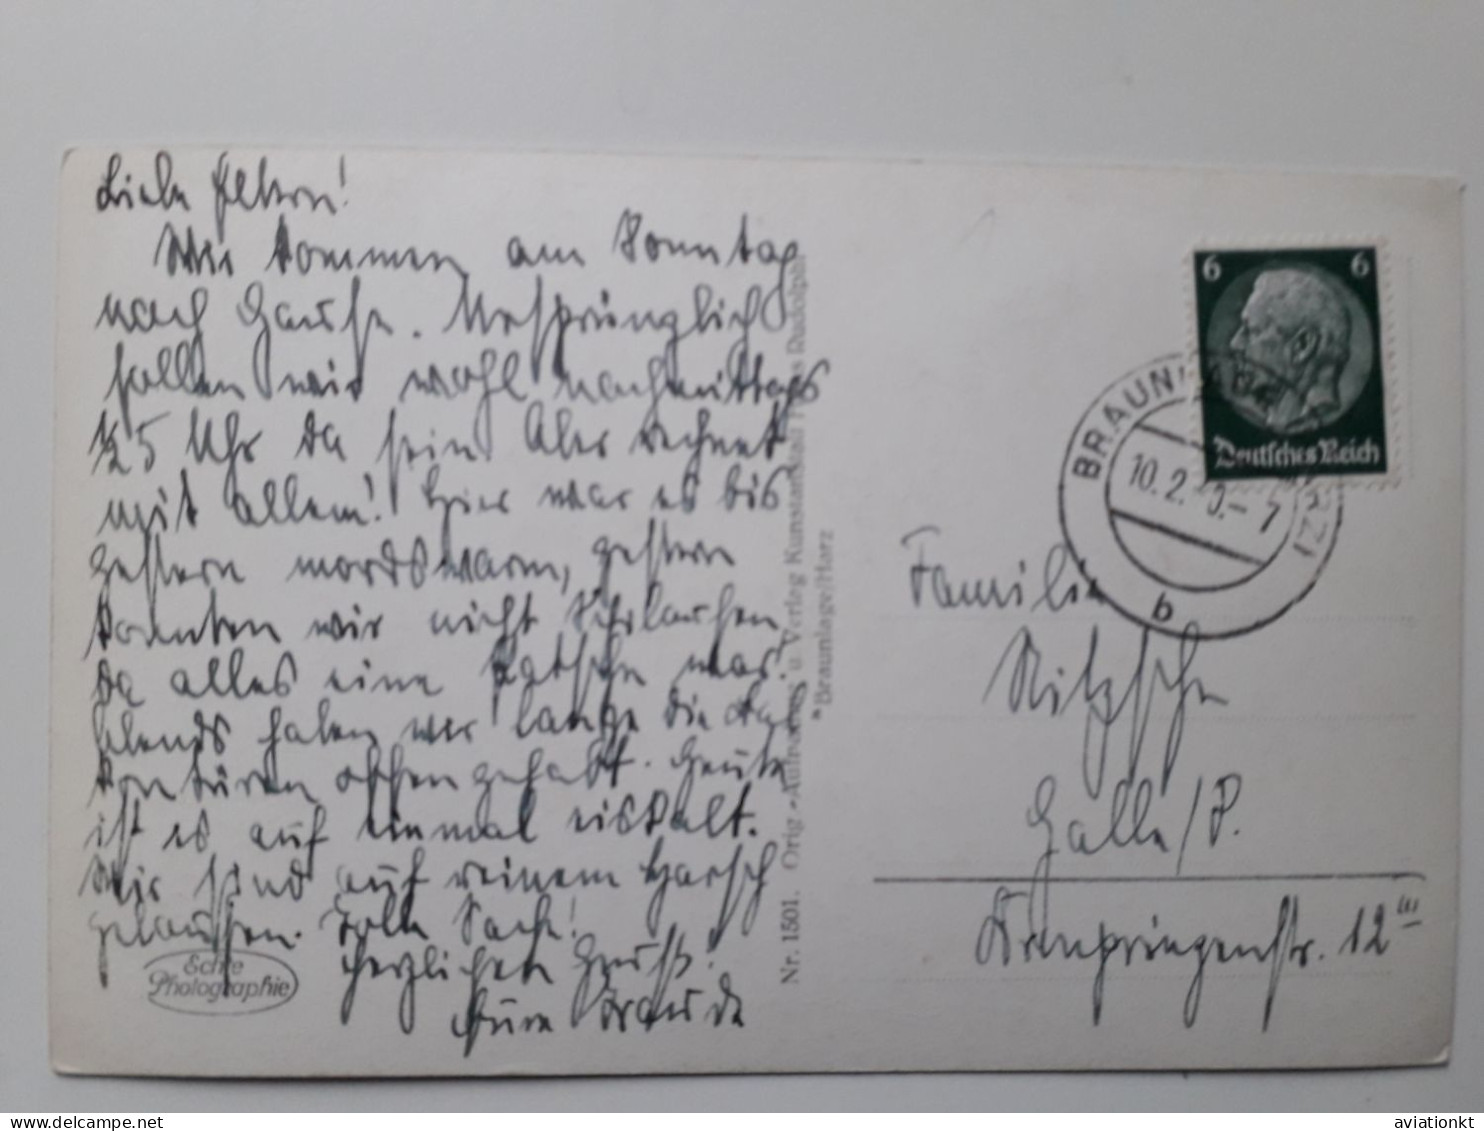 Liebe Eltern!
Wir kommen am Sonntag
nach Hause. Ursprünglich
sollen wir wohl nachmittags
1/2 5 Uhr da sein. Aber rechnet
mit allem! Hier war es bis
gestern mordswarm, gestern
konnten wir nicht Schilaufen
da alles eine Patsche war.
Abends haben wir lange die Bal
kontüren offen gehabt. Heute
ist es auf einmal eiskalt.
Wir sind auf reinem Harsch
gelaufen. Tolle Sache!
Herzlichen Gruß!
Eure Traude
Echte
Photographie
Nr. 1501. Orig.-Aufnahme u. Verlag Kunstanstalt Rudolphi
*Braunlage/Harz
6 6
Deutsches Reich
BRAUNLAGE
10.2. 0.-7
b
Familie
Nitzsche
Halle/S.
12 III
aviationkt